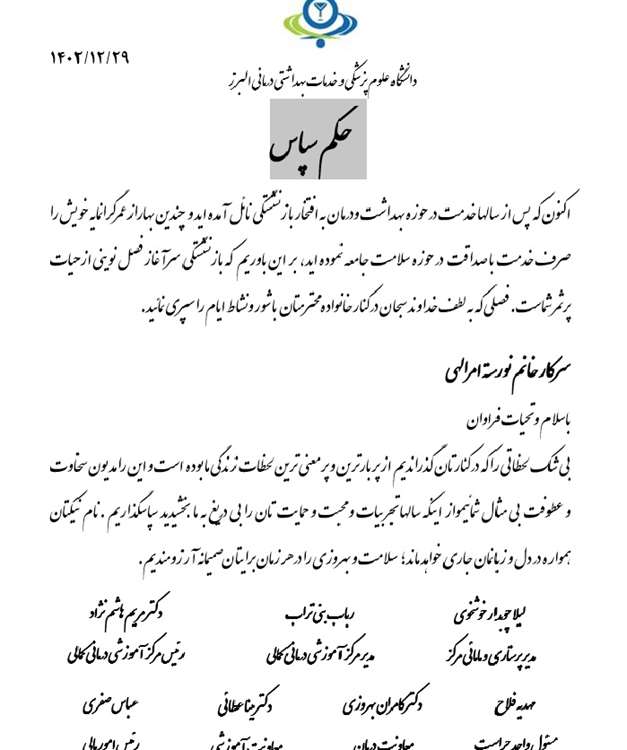 ۱۴۰۲/۱۲/۲۹
دانشگاه علوم پزشکی و خدمات بهداشتی درمانی البرز
حکم سپاس
اکنون که پس از سالها خدمت در حوزه بهداشت و درمان به افتخار بازنشستگی نائل آمده اید و چندین بهار از عمر گرانمایه خویش را
صرف خدمت با صداقت در حوزه سلامت جامعه نموده اید، بر این باوریم که بازنشستگی سرآغاز فصل نوینی از حیات
پرثمر شماست. فصلی که به لطف خداوند سبحان در کنار خانواده محترمتان با شور و نشاط ایام را سپری نمائید.
سرکار خانم نورسته امرالهی
با سلام و تحیات فراوان
بی شک لحظاتی را که در کنارتان گذراندیم از پربارترین و پر معنی ترین لحظات زندگی ما بوده است و این را مدیون سخاوت
و عطوفت بی مثال شمائیم و از اینکه سالها تجربیات و محبت و حمایت تان را بی دریغ به ما بخشیدید سپاسگذاریم . نام نیکتان
همواره در دل و زبانمان جاری خواهد ماند؛ سلامت و بهروزی را در هر زمان برایتان صمیمانه آرزومندیم.
لیلا چوبدار خوشخوی رباب بنی تراب دکتر مریم هاشم نژاد
مدیر پرستاری و مامائی مرکز مدیر مرکز آموزشی درمانی کمالی رئیس مرکز آموزشی درمانی کمالی
مهدیه فلاح دکتر کامران بهروزی دکتر مینا عطائی عباس صفری
مسئول واحد حراست معاونت درمان معاونت آموزشی رئیس امور مالی